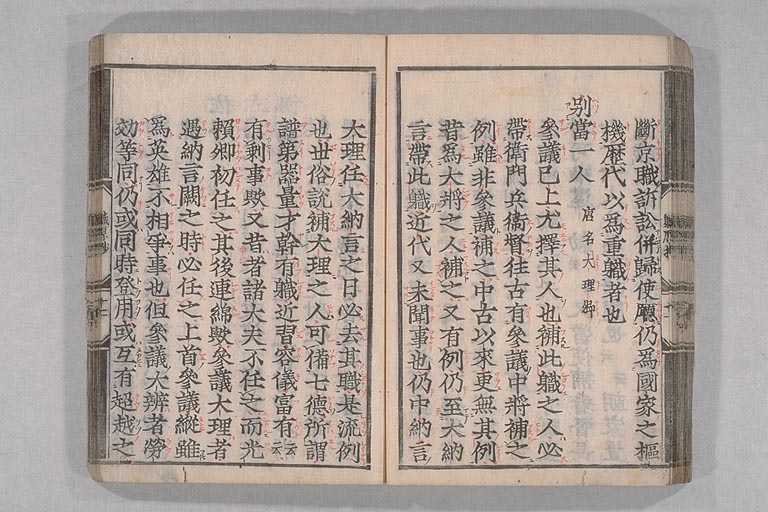 斷京職訴訟併歸使廳仍爲國家之樞
機歷代以爲重職者也
別當一人 唐名大理卿
參議已上尤擇其人也補此職之人必
帶衛門兵衛督往古有參議中將補之
例雖非參議補之中古以來更無其例
昔爲大將之人補之又有例仍至大納
言帶此職近代又未聞事也仍中納言
大理任大納言之日必去其職是流例
也世俗說補大理之人可備七德所謂
譜第器量才幹有職近習容儀富有云云
有剩事歟又昔者諸大夫不任之而光
賴卿初任之其後連綿歟參議大理者
遇納言闕之時必任之上首參議縱雖
爲英雄不相爭事也但參議大辨者勞
効等同仍或同時登用或互有超越之